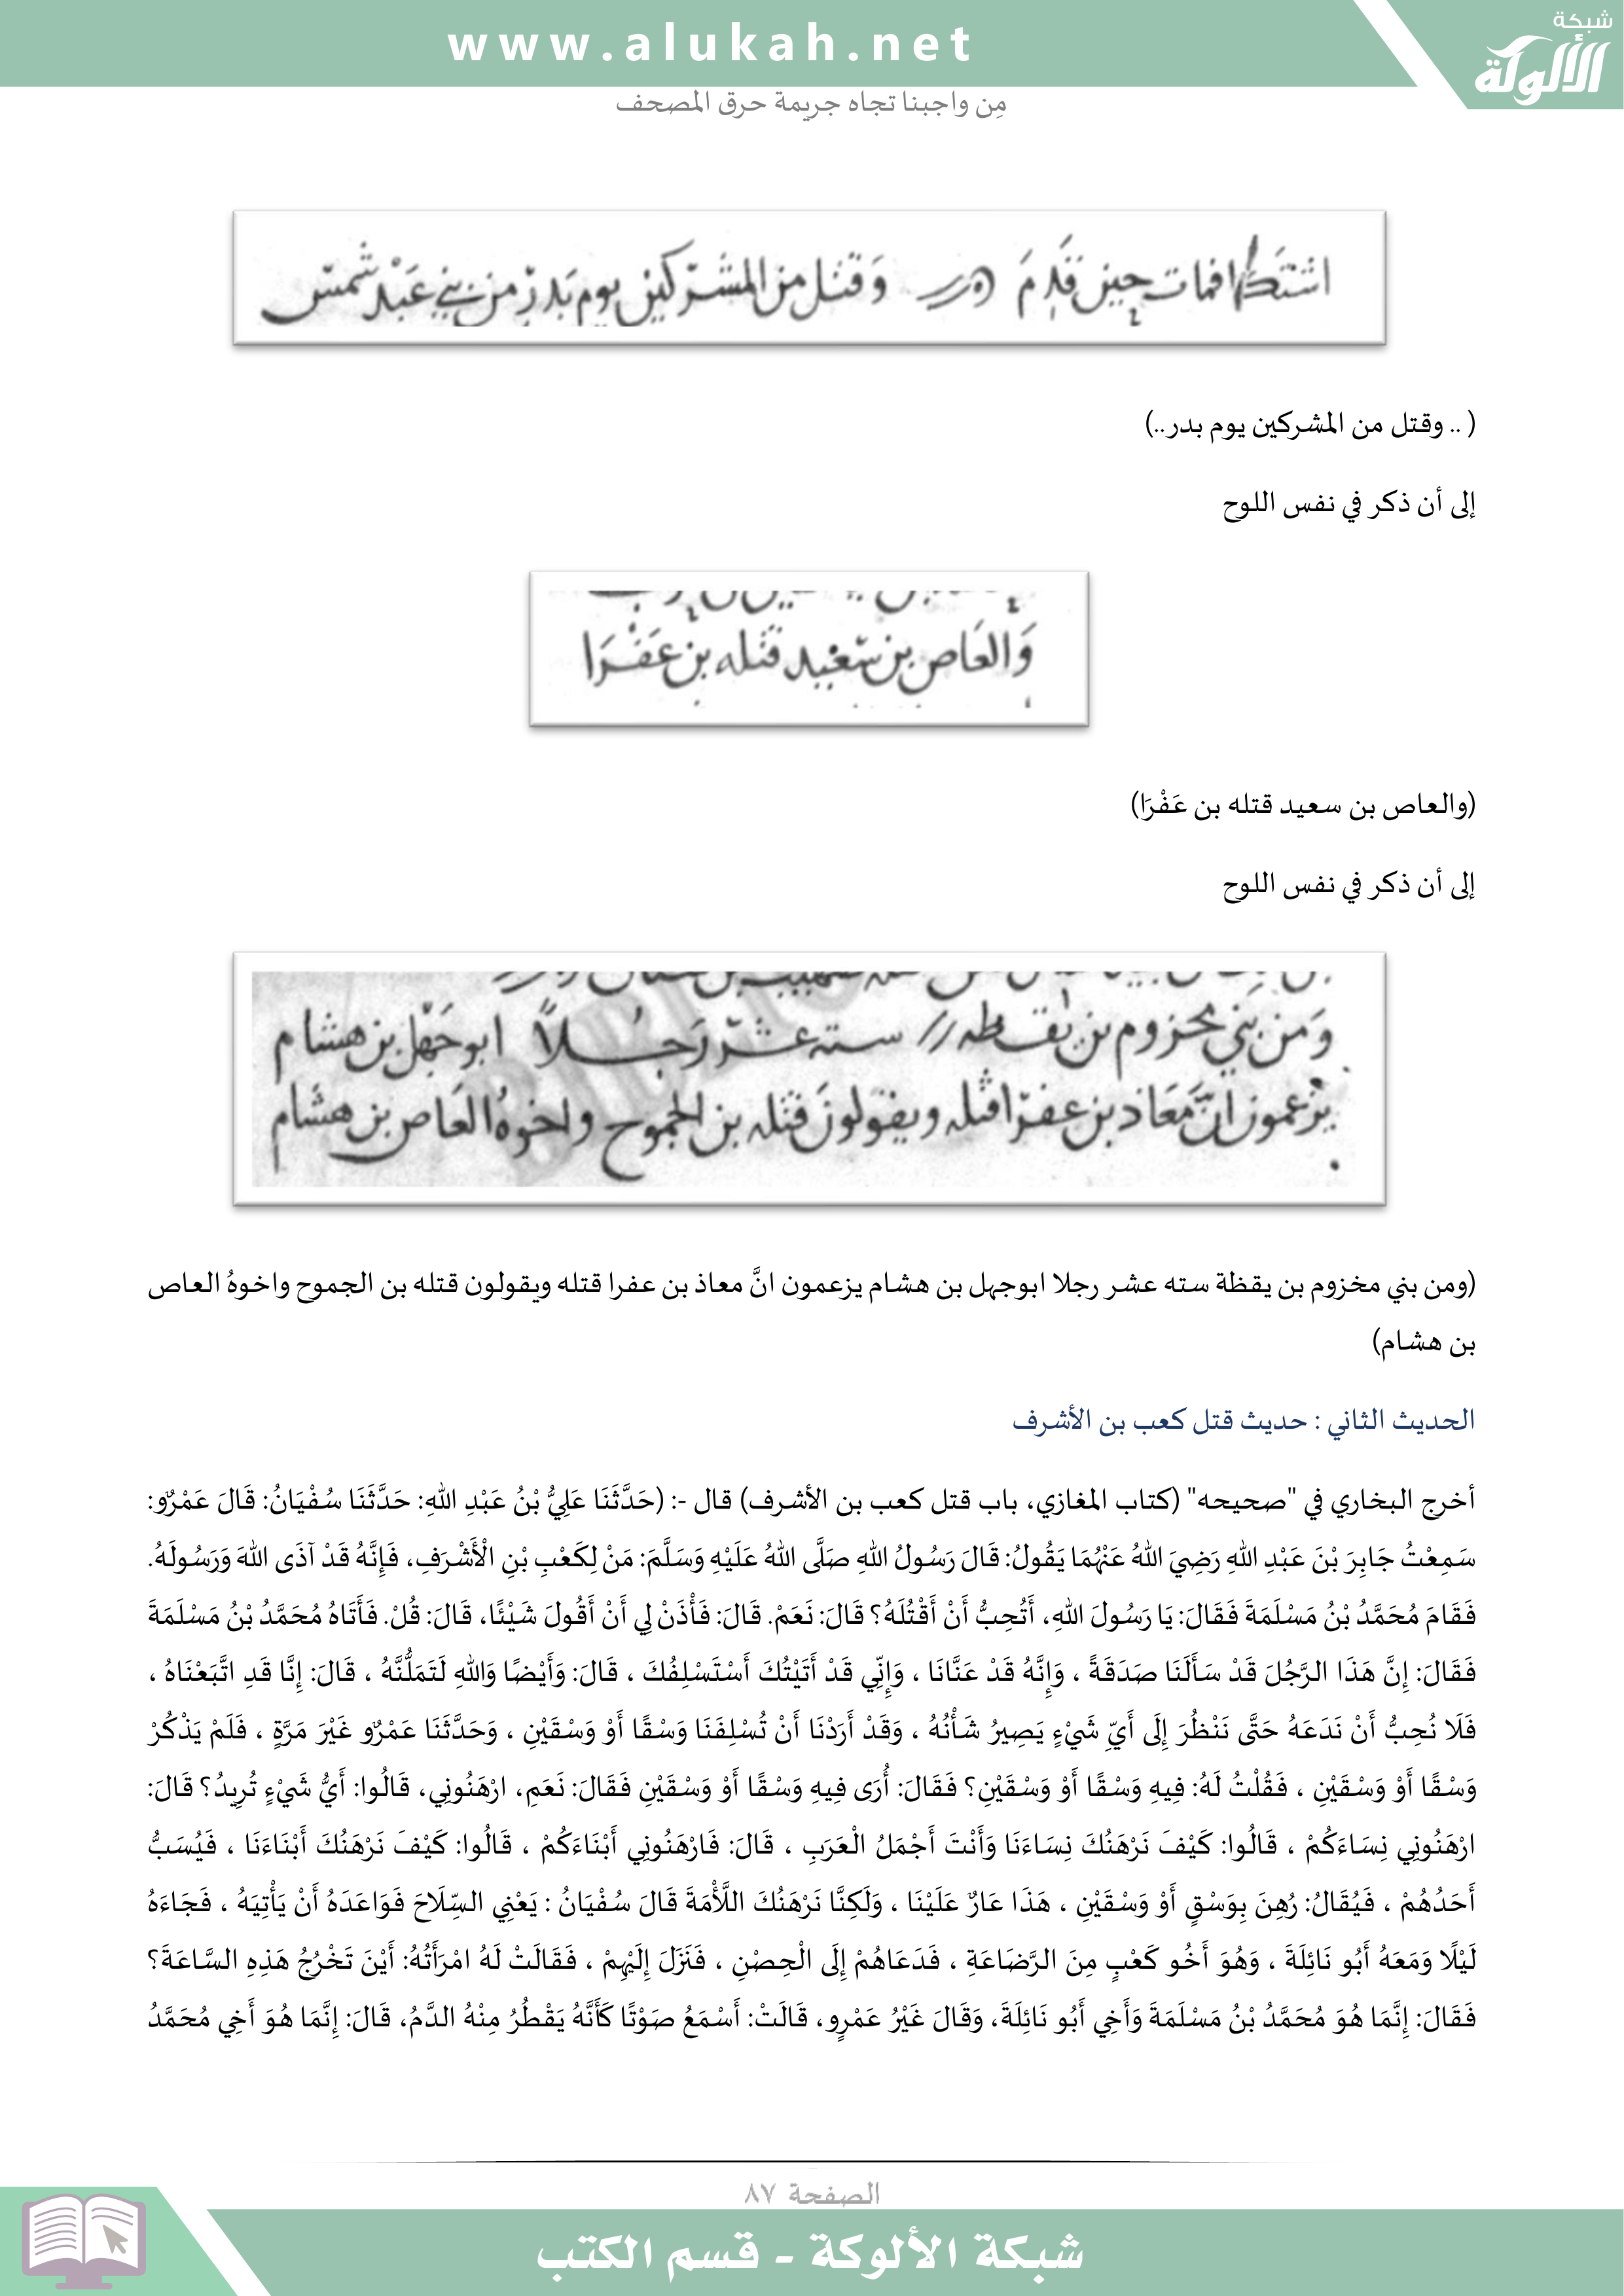 www.alukah.net
شبكة
الألوكة
مِن واجبنا تجاه جريمة حرق المصحف
اشتكا فمات حين قدم وَقتل من المشركين يوم بَدر من بني عَبْد شمس
( .. وقتل من المشركين يوم بدر..)
إلى أن ذكر في نفس اللوح
وَالعَاص بن سَعيد قتله بن عَفْرَا
(والعاص بن سعيد قتله بن عَفْرَا)
إلى أن ذكر في نفس اللوح
وَمن بني مخزوم بن يقظه سته عشر رَجُلاً ابو جَهْل بن هشام
يزعمون انَّ مَعَاذ بن عفرا قتله ويقولون قتله بن الجموح واخوهُ العَاص بن هشام
(ومن بني مخزوم بن يقظة سته عشر رجلا ابوجهل بن هشام يزعمون انَّ معاذ بن عفرا قتله ويقولون قتله بن الجموح واخوهُ العاص
بن هشام)
الحديث الثاني : حديث قتل كعب بن الأشرف
أخرج البخاري في "صحيحه" (كتاب المغازي، باب قتل كعب بن الأشرف) قال -: (حَدَّثَنَا عَلِيُّ بْنُ عَبْدِ اللهِ: حَدَّثَنَا سُفْيَانُ: قَالَ عَمْرٌو:
سَمِعْتُ جَابِرَ بْنَ عَبْدِ اللهِ رَضِيَ اللهُ عَنْهُمَا يَقُولُ: قَالَ رَسُولُ اللهِ صَلَّى اللهُ عَلَيْهِ وَسَلَّمَ: مَنْ لِكَعْبِ بْنِ الْأَشْرَفِ، فَإِنَّهُ قَدْ آذَى اللهَ وَرَسُولَهُ.
فَقَامَ مُحَمَّدُ بْنُ مَسْلَمَةَ فَقَالَ: يَا رَسُولَ اللهِ، أَتُحِبُّ أَنْ أَقْتُلَهُ؟ قَالَ: نَعَمْ. قَالَ: فَأْذَنْ لِي أَنْ أَقُولَ شَيْئًا، قَالَ: قُلْ. فَأَتَاهُ مُحَمَّدُ بْنُ مَسْلَمَةَ
فَقَالَ: إِنَّ هَذَا الرَّجُلَ قَدْ سَأَلَنَا صَدَقَةً ، وَإِنَّهُ قَدْ عَنَّانَا ، وَإِنِّي قَدْ أَتَيْتُكَ أَسْتَسْلِفُكَ ، قَالَ: وَأَيْضًا وَاللهِ لَتَمَلُّنَّهُ ، قَالَ: إِنَّا قَدِ اتَّبَعْنَاهُ ،
فَلَا نُحِبُّ أَنْ نَدَعَهُ حَتَّى نَنْظُرَ إِلَى أَيِّ شَيْءٍ يَصِيرُ شَأْنُهُ ، وَقَدْ أَرَدْنَا أَنْ تُسْلِفَنَا وَسْقًا أَوْ وَسْقَيْنِ ، وَحَدَّثَنَا عَمْرٌو غَيْرَ مَرَّةٍ ، فَلَمْ يَذْكُرْ
وَسْقًا أَوْ وَسْقَيْنِ ، فَقُلْتُ لَهُ: فِيهِ وَسْقًا أَوْ وَسْقَيْنِ؟ فَقَالَ: أُرَى فِيهِ وَسْقًا أَوْ وَسْقَيْنِ فَقَالَ: نَعَمِ، ارْهَنُونِي، قَالُوا: أَيُّ شَيْءٍ تُرِيدُ؟ قَالَ:
ارْهَنُونِي نِسَاءَكُمْ ، قَالُوا: كَيْفَ نَرْهَنُكَ نِسَاءَنَا وَأَنْتَ أَجْمَلُ الْعَرَبِ ، قَالَ: فَارْهَنُونِي أَبْنَاءَكُمْ ، قَالُوا: كَيْفَ نَرْهَنُكَ أَبْنَاءَنَا ، فَيُسَبُّ
أَحَدُهُمْ ، فَيُقَالُ: رُهِنَ بِوَسْقٍ أَوْ وَسْقَيْنِ ، هَذَا عَارٌ عَلَيْنَا ، وَلَكِنَّا نَرْهَنُكَ اللَّأْمَةَ قَالَ سُفْيَانُ : يَعْنِي السِّلَاحَ فَوَاعَدَهُ أَنْ يَأْتِيَهُ ، فَجَاءَهُ
لَيْلًا وَمَعَهُ أَبُو نَائِلَةَ ، وَهُوَ أَخُو كَعْبٍ مِنَ الرَّضَاعَةِ ، فَدَعَاهُمْ إِلَى الْحِصْنِ ، فَنَزَلَ إِلَيْهِمْ ، فَقَالَتْ لَهُ امْرَأَتُهُ: أَيْنَ تَخْرُجُ هَذِهِ السَّاعَةَ؟
فَقَالَ: إِنَّمَا هُوَ مُحَمَّدُ بْنُ مَسْلَمَةَ وَأَخِي أَبُو نَائِلَةَ، وَقَالَ غَيْرُ عَمْرٍو، قَالَتْ: أَسْمَعُ صَوْتًا كَأَنَّهُ يَقْطُرُ مِنْهُ الدَّمُ، قَالَ: إِنَّمَا هُوَ أَخِي مُحَمَّدُ
الصفحة ٨٧
شبكة الألوكة - قسم الكتب